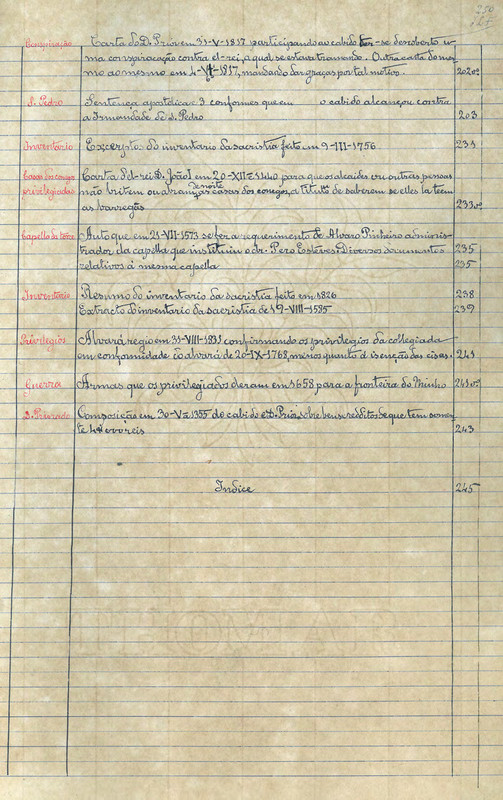 250
Conspiração Carta do D. Prior em 31-V-1817 participando ao cabido ter-se descoberto u-
ma conspiração contra el-rei, a qual se estava tramando. Outra carta do mes-
mo ao mesmo em 4-VI-1817, mandando dar graças por tal motivo. 202vº
S. Pedro Sentença apostolica e 3 conformes que em o cabido alcançou contra
a Irmandade de S. Pedro 203
Inventário Excerptos do inventario da sacristia feito em 9-III-1756 231
Casas dos conegos Carta d'el-rei D. João I em 20-XII-1440 para que os alcaides ou outras pessoas
privilegiadas não britem ou abranjam de noite as casas dos conegos, a titulo de saberem se elles la teem
as barregãs 233vº
Capella da torre Auto que em 21-VII-1573 se fez a requerimento de Alvaro Pinheiro adminis-
trador da capella que instituiu o dr. Pero Esteves. Diversos documentos 235
relativos á mesma capella 235
Inventário Resumo do inventario da sacristia feito em 1826 238
Extracto d'inventario da sacristia de 19-VIII-1595 239
Privilegios Alvará regio em 31-VIII-1831 confirmando os privilegios da collegiada
em conformidade c/o alvará de 20-IX-1768, menos quanto á isenção das cisas. 241
Guerra Armas que os privilegiados deram em 1658 para a fronteira do Minho 241vº
D. Priorado Composição em 30-V-1355 do cabido e D. Prior, sobre bens e redditos de que tem somen-
te reis 243
Indice 245